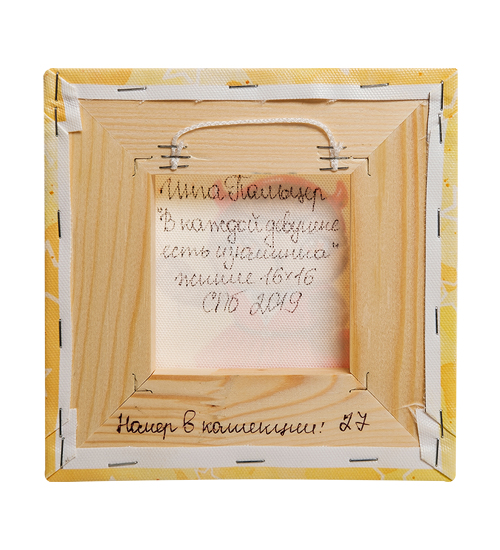 Инга Пальцер
"В каждой девушке
есть изюминка"
16×16
СПб 2019
Номер в коллекции: 27